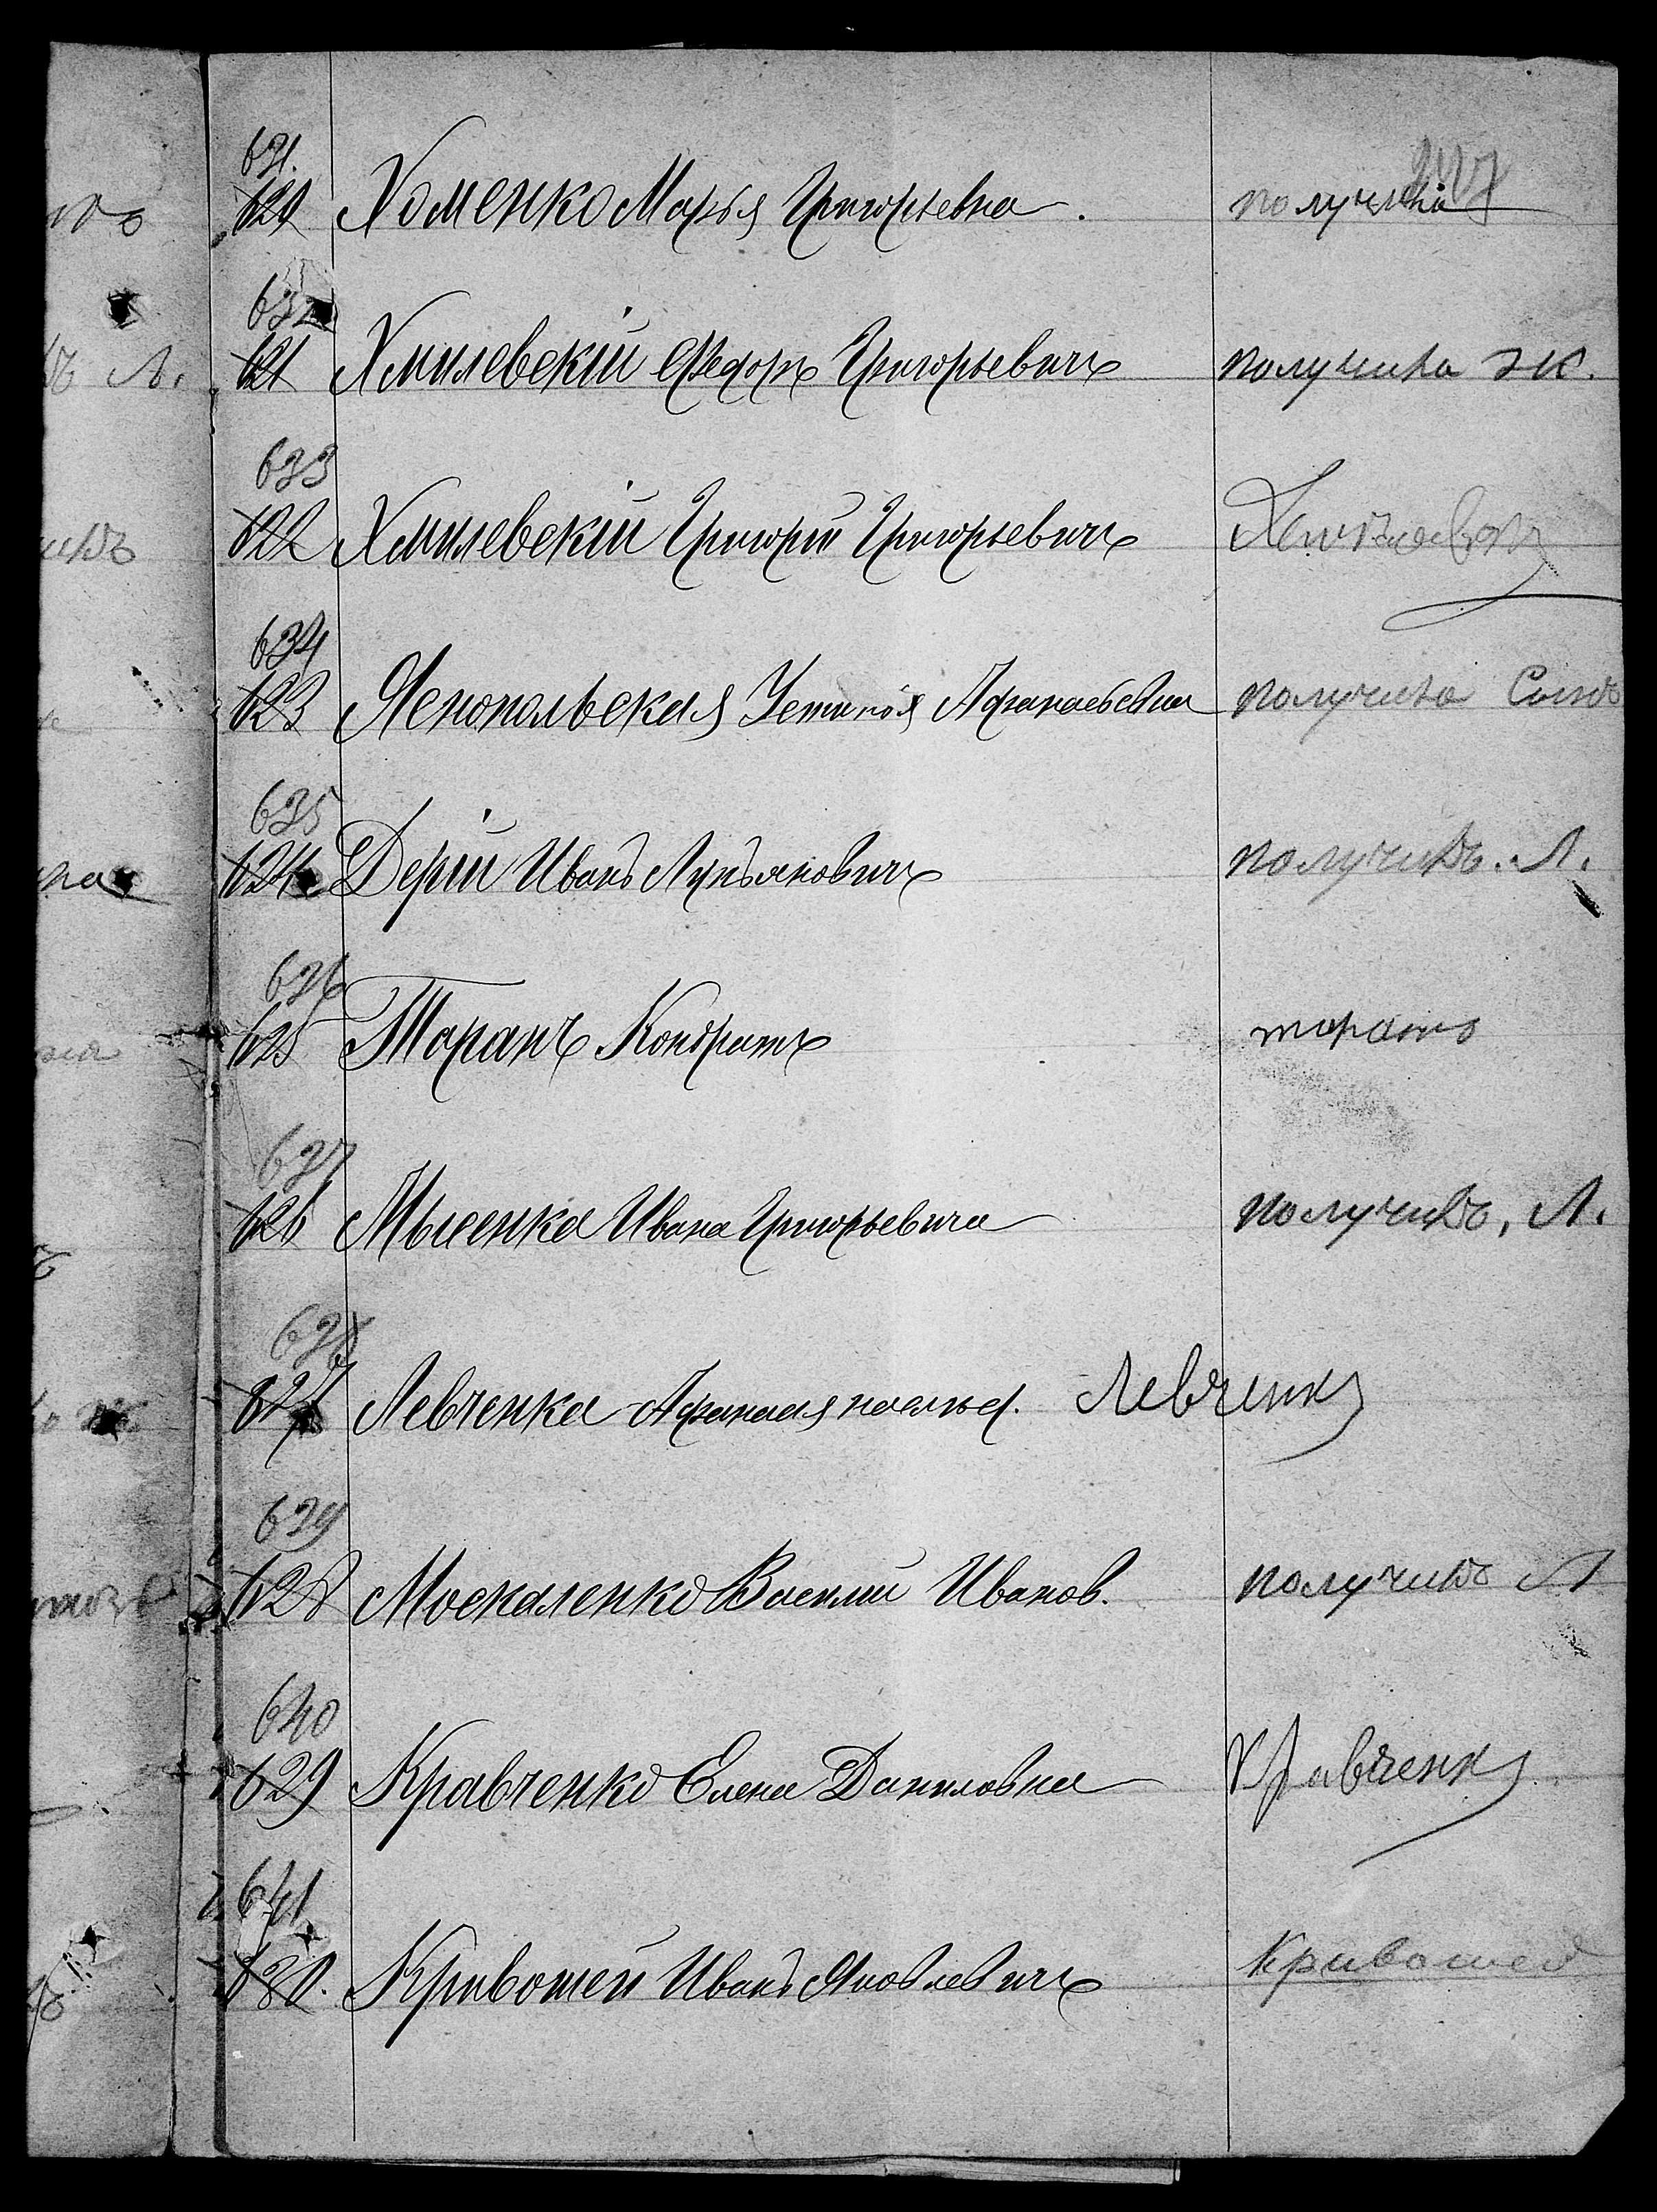 631.
620 Хоменко Марья Григорьевна. получила
632
621 Хмилевскій Федоръ Григорьевичъ получила ж.
633
622 Хмилевскій Григорій Григорьевичъ
634
623 Яснопольская Устинія Афанасьевна получила Сынъ
635
624 Дерій Иванъ Лукьяновичъ получилъ. Л.
636
625 Таранъ Кондратъ таранъ
637
626 Мысенка Ивана Григорьевича получилъ, Л.
638
627 Левченка Афанасія наслѣд. Левченко
639
628 Москаленко Василій Иванов. получилъ Л
640
629 Кравченко Елена Даниловна Кравченко
641
630. Кривошей Иванъ Яковлевичъ Кривошей